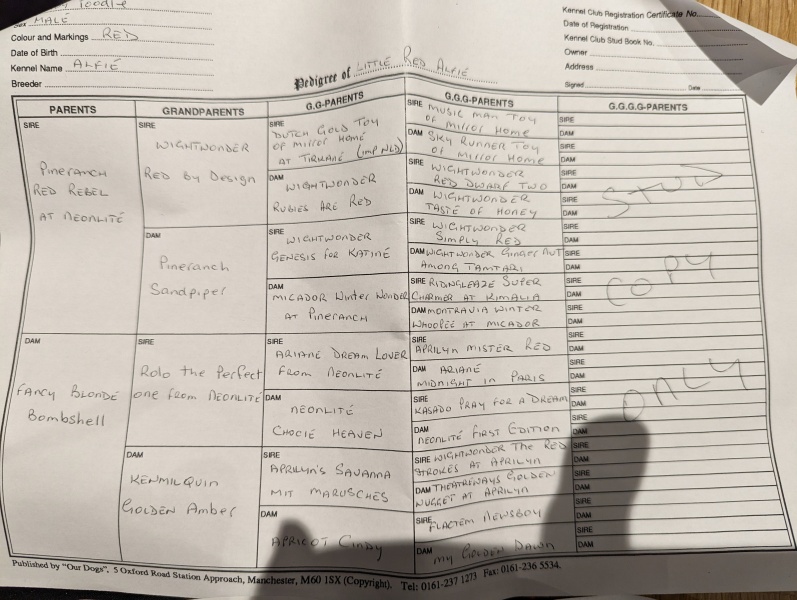 Poodle
Sex MALE
Colour and Markings RED
Date of Birth
Kennel Name ALFIE
Breeder
Kennel Club Registration Certificate No.
Date of Registration
Kennel Club Stud Book No.
Owner
Address
Signed Date
Pedigree of LITTLE RED ALFIE
PARENTS
GRANDPARENTS
G.G-PARENTS
G.G.G-PARENTS
G.G.G.G-PARENTS
SIRE
Pineranch
RED REBEL
AT NEONLITÉ
DAM
FANCY BLONDE
Bombshell
SIRE
WIGHTWONDER
RED By DESIGN
DAM
Pineranch
Sandpiper
SIRE
Rolo the Perfect
one from NEONLITÉ
DAM
KENMILQUIN
GOLDEN AMBER
SIRE
DUTCH GOLD TOY
OF MIRROR HOME
AT TIRKANE (imp NLD)
DAM
WIGHTWONDER
RUBIES ARE RED
SIRE
WIGHTWONDER
GENESIS FOR KATINÉ
DAM
MICADOR Winter Wonder
AT PINERANCH
ARIANE DREAM LOVER
FROM NEONLITÉ
DAM
NEONLITÉ
CHOCIÉ HEAVEN
SIRE
APRILYN'S SAVANNA
MIT MARUSCHES
DAM
APRICOT CINDY
SIRE MUSIC MAN TOY
OF MIRROR HOME
DAM SKY RUNNER TOY
OF MIRROR HOME
SIRE WIGHTWONDER
RED DWARF TWO
DAM WIGHTWONDER
TASTE OF HONEY
SIRE WIGHTWONDER
SIMPLY RED
DAM WIGHTWONDER GINGER NUT
AMONG TAMTARI
SIRE RIDINGLEAZE SUPER
CHARMER AT KIMALIA
DAM MONTRAVIA WINTER
WHOOPEE AT MICADOR
SIRE APRILYN MISTER RED
DAM ARIANE
MIDNIGHT IN PARIS
SIRE KASADO PRAY FOR A DREAM
DAM NEONLITÉ FIRST EDITION
SIRE WIGHTWONDER THE RED
STROKES AT APRILYN
DAM THEATREWAYS GOLDEN
NUGGET AT APRILYN
SIRE FLACTEM NEWSBOY
DAM MY GOLDEN DAWN
SIRE
DAM
SIRE
DAM
SIRE
DAM
SIRE
DAM
SIRE
DAM
SIRE
DAM
SIRE
DAM
SIRE
DAM
SIRE
DAM
SIRE
DAM
SIRE
DAM
SIRE
DAM
SIRE
DAM
STUD
COPY
ONLY
Published by "Our Dogs", 5 Oxford Road Station Approach, Manchester, M60 1SX (Copyright). Tel: 0161-237 1273 Fax: 0161-236 5534.